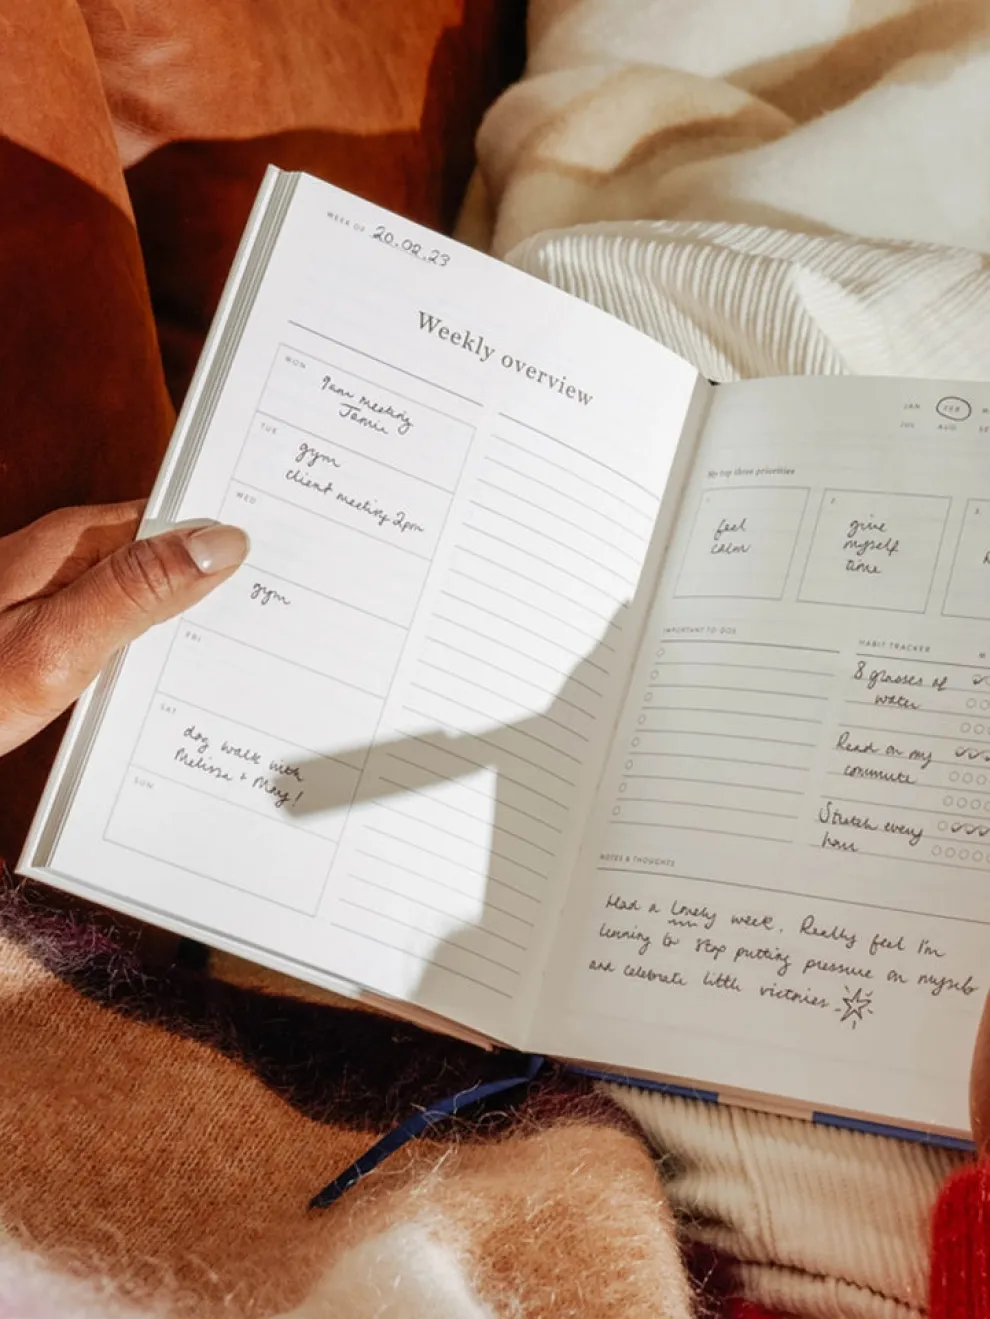 WEEK OF 20.02.23
Weekly overview
MON
9am meeting
Jamie
TUE
gym
client meeting 2pm
WED
gym
FRI
SAT
dog walk with
Melissa + May!
SUN
JAN FEB
JUL AUG SE
My top three priorities
1.
feel
calm
2.
give
myself
time
3.
IMPORTANT TO-DOS
HABIT TRACKER M
8 glasses of
water
Read on my
commute
Stretch every
hour
NOTES & THOUGHTS
Had a lovely week. Really feel I'm
learning to stop putting pressure on myself
and celebrate little victories